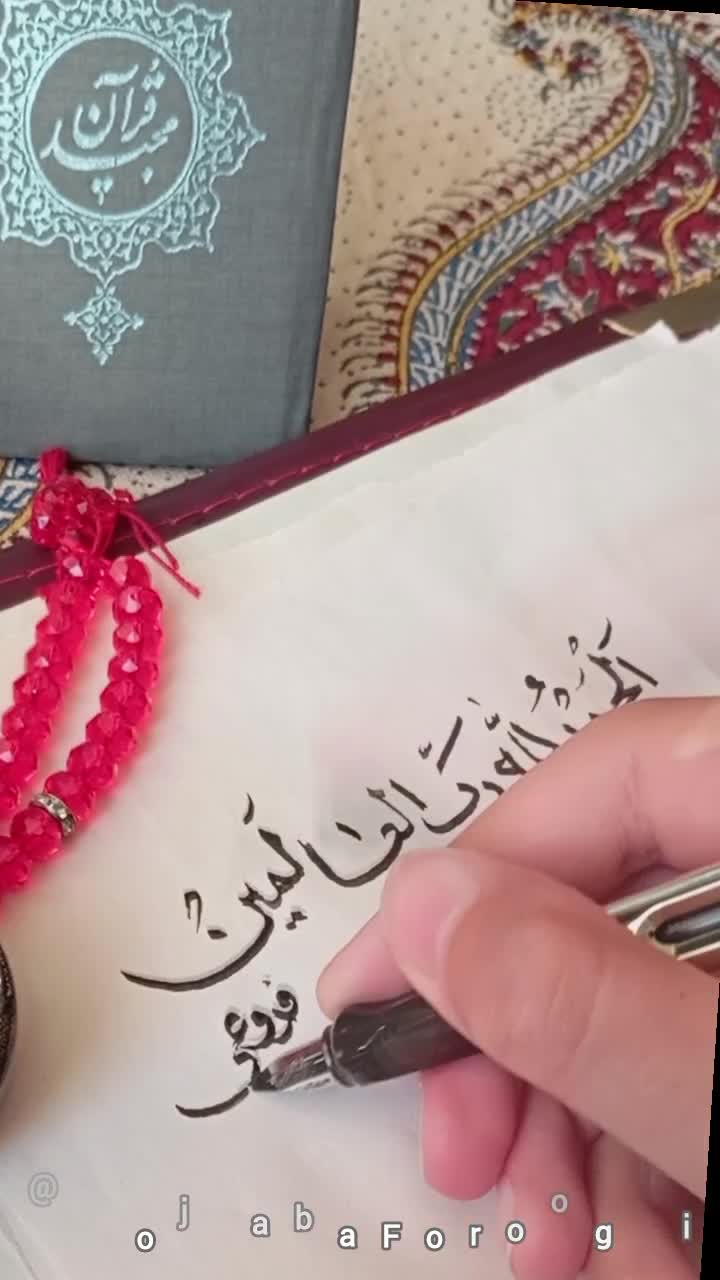 قرآن مجید
الحمد لله رب العالمین
فروغی
@ojabaForoogi